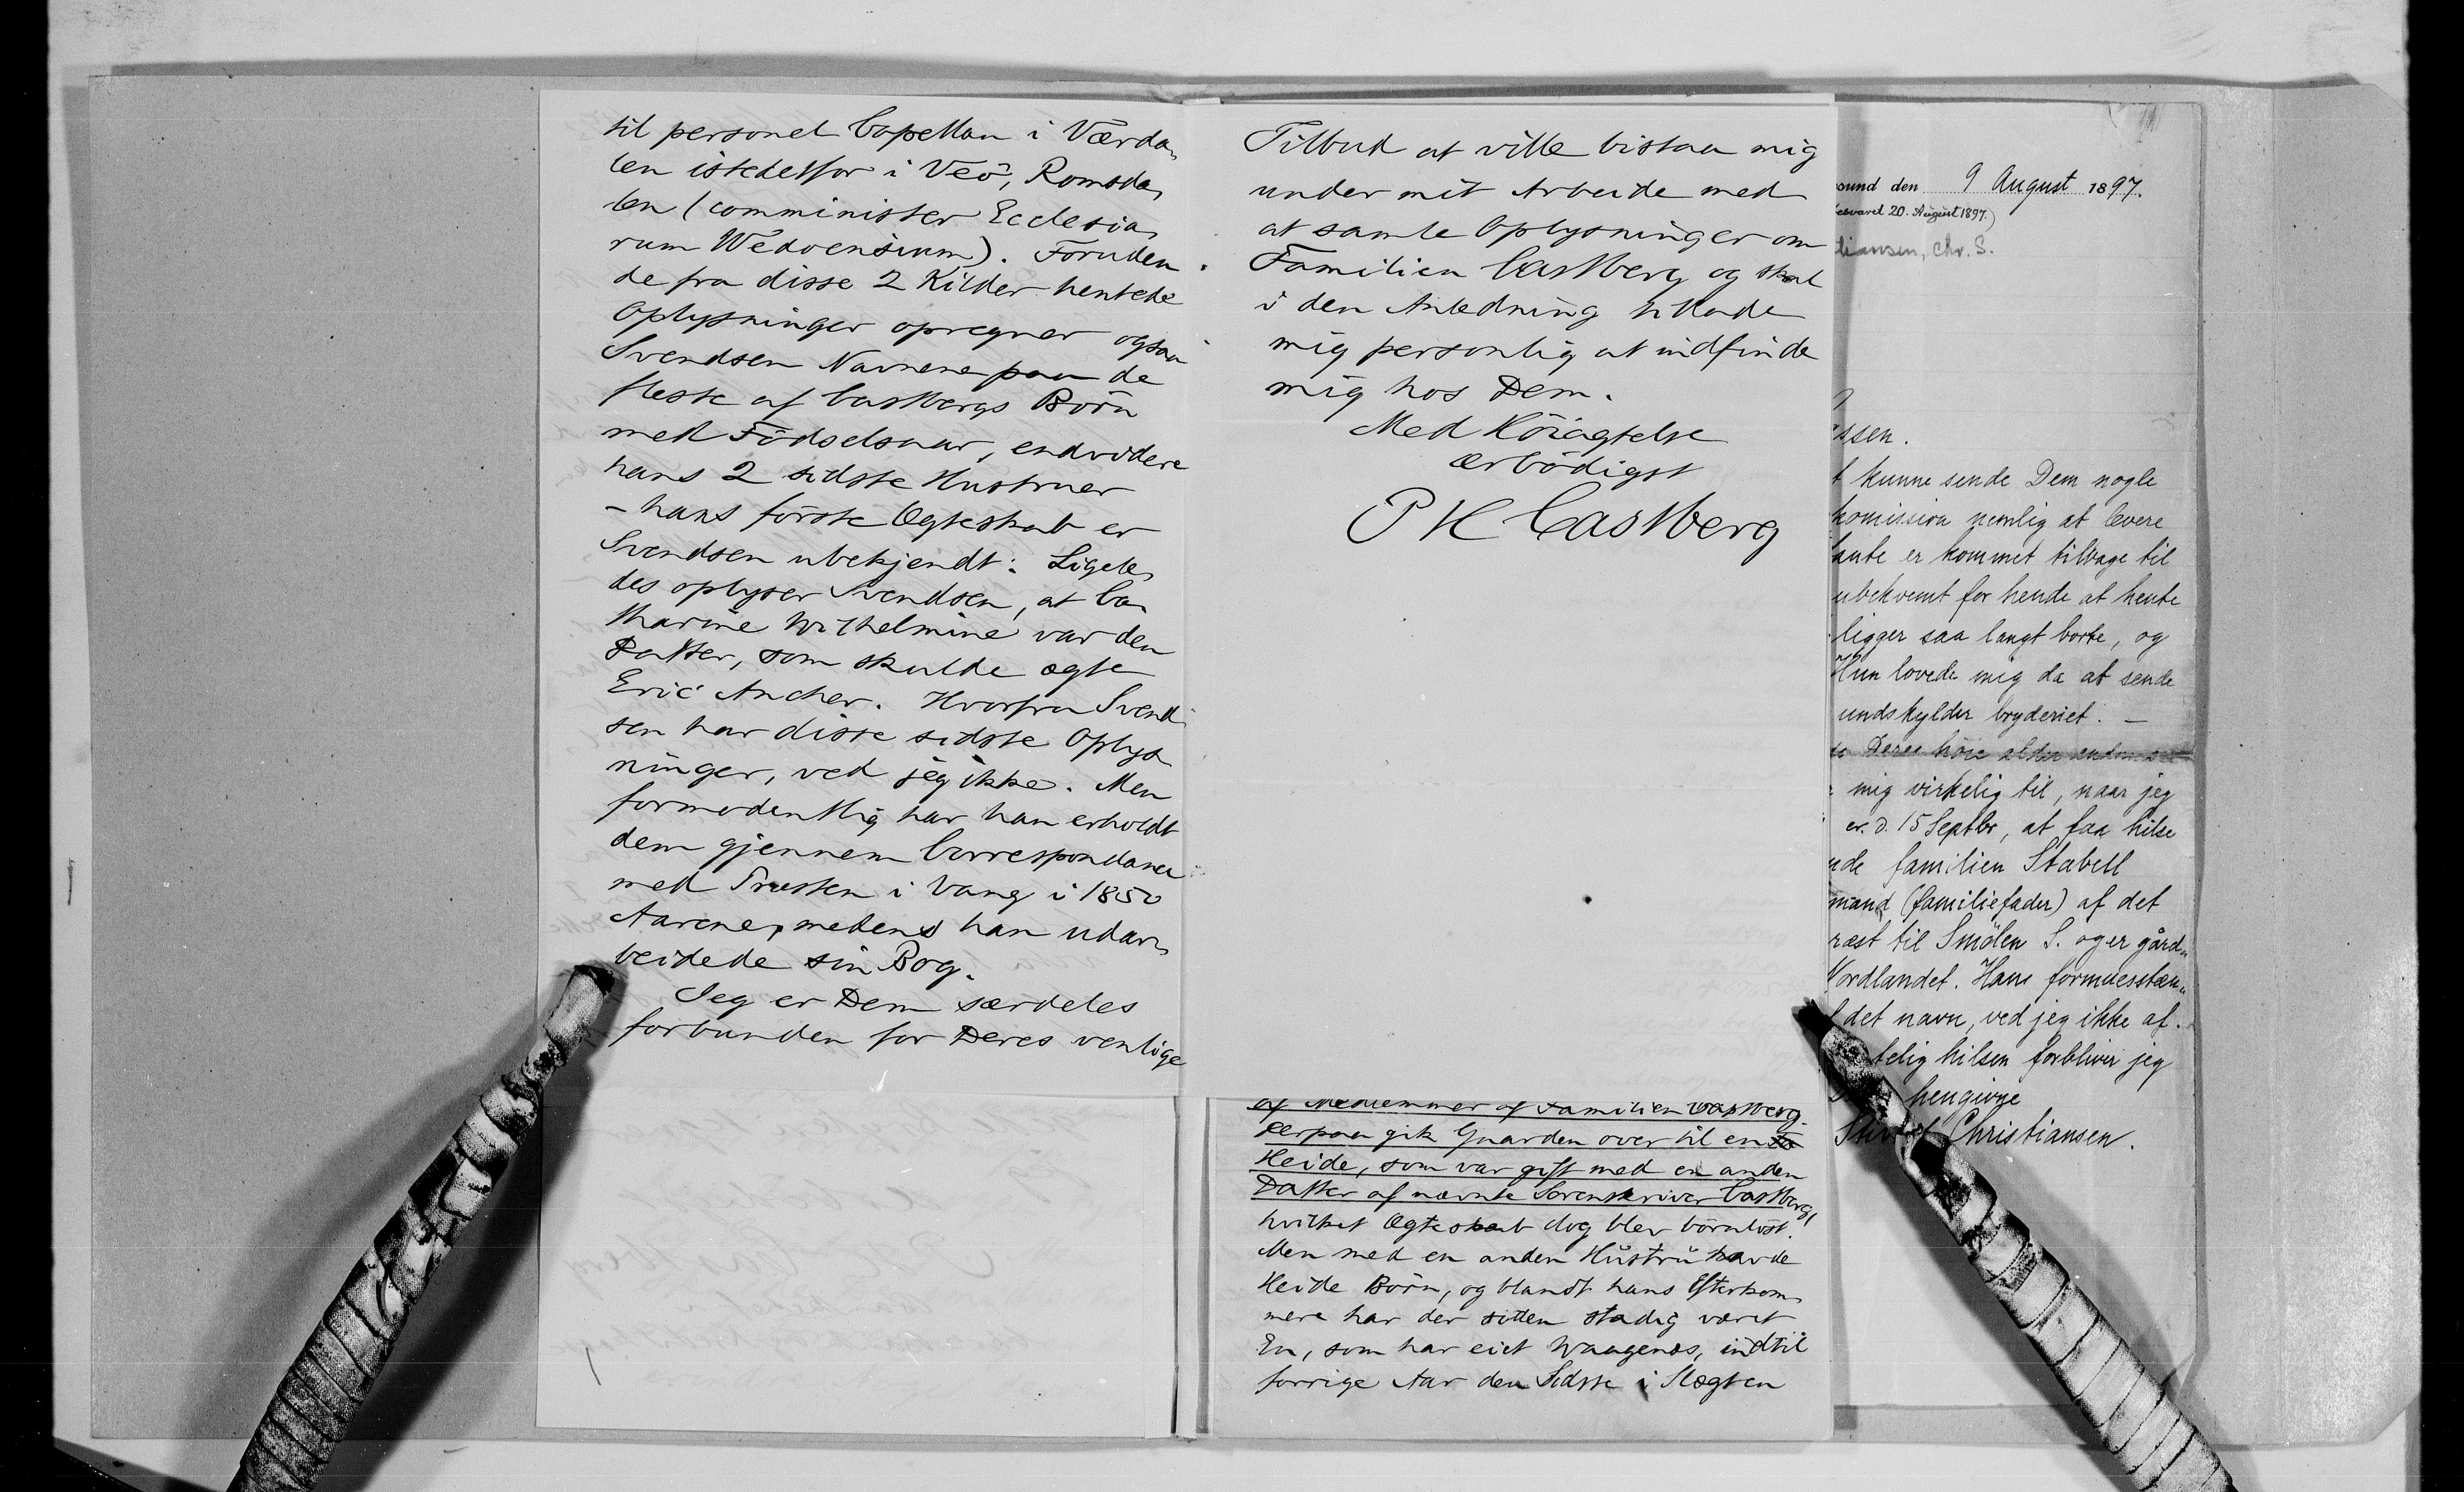 til personel Capellan i Værda-
len istedetfor i Veö, Romsda-
len (comminister Ecclesia-
rum Wedoensium). Foruden
de fra disse 2 Kilder hentede
Oplysninger opregner ogsaa
Svendsen Navnene paa de
fleste af Castbergs Börn
med Födselsaar, endvidere
hans 2 sidste Hustruer
– hans förste Ægteskab er
Svendsen ubekjendt. Ligele-
des oplyser Svendsen, at Ca-
tharine Wilhelmine var den
Datter, som skulde ægte
Eric Ancher. Hvorfra Svend-
sen har disse sidste Oplys-
ninger, ved jeg ikke. Men
formodentlig har han erholdt
dem gjennem Correspondance
med Prosten i Vang i 1850
Aarene, medens han udar-
beidede sin Bog.
Jeg er Dem særdeles
forbunden for Deres venlige
Tilbud at ville bistaa mig
under mit Arbeide med
at samle Oplysninger om
Familien Castberg og skal
i den Anledning tillade
mig personlig at indfinde
mig hos Dem.
Med Höiagtelse
ærbödigst
P H Castberg
af Medlemmer af Familien Castberg.
Derpaa gik Gaarden over til en
Heide, som var gift med en anden
Datter af nævnte Sorenskriver Castberg,
hvilket Ægteskab dog blev börnlöst.
Men med en anden Hustru havde
Heide Börn, og blandt hans Efterkom-
mere har der siden stadig været
En, som har eiet Waagenæs, indtil
forrige Aar den Sidste i Slægten
sund den 9 August 1897.
esvaret 20. August 1897.)
tiansen, Chr. S.
ssen.
t kunne sende Dem nogle
komission nemlig at levere
tante er kommet tilbage til
ubekvemt for hende at hente
ligger saa langt borte, og
Hun lovede mig da at sende
undskylder bryderiet. –
Deres höie alder
mig virkelig til, naar jeg
er. d. 15 Septbr, at faa hilse
nde familien Stabell
mand (familiefader) af det
ræst til Smölen S. og er gård-
Nordlandet. Hans
det navn, ved jeg ikke af.
telig hilsen forbliver jeg
hengivne
Christiansen.